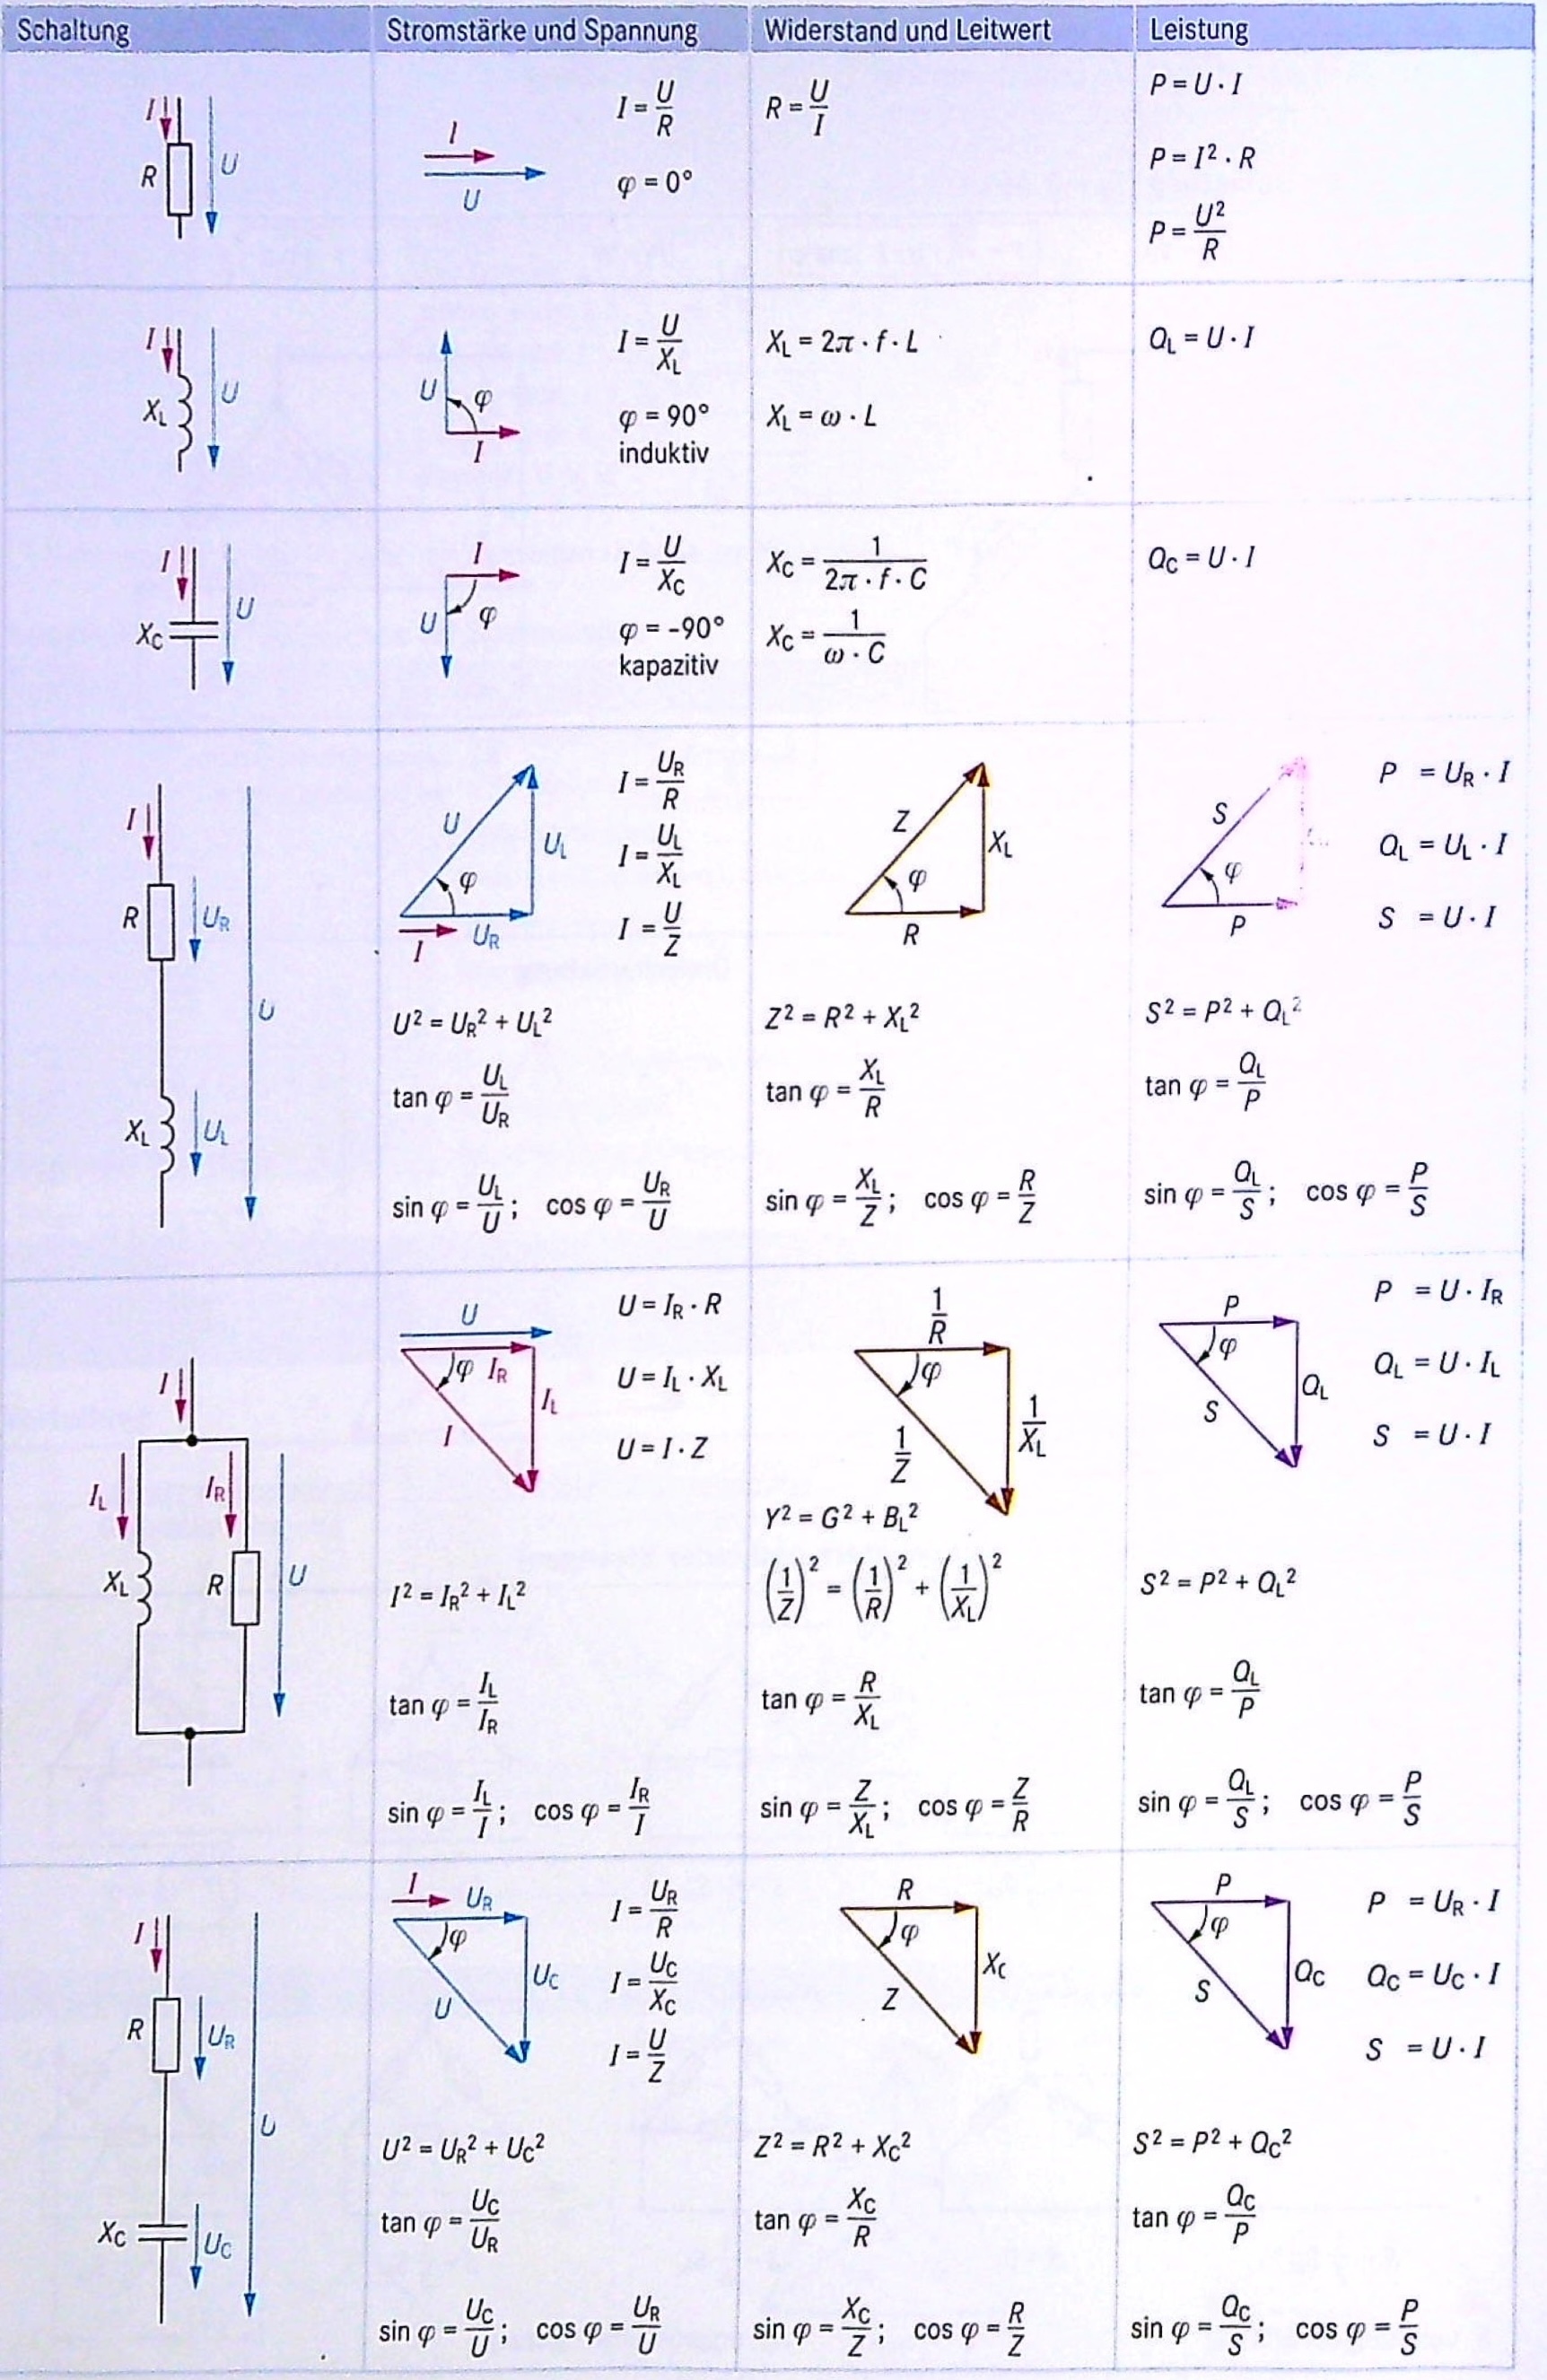 Schaltung
Stromstärke und Spannung
Widerstand und Leitwert
Leistung
I
R
U
I
U
I = U/R
φ = 0°
R = U/I
P = U · I
P = I² · R
P = U²/R
I
X_L
U
U
φ
I
I = U/X_L
φ = 90°
induktiv
X_L = 2π · f · L
X_L = ω · L
Q_L = U · I
I
X_C
U
I
U
φ
I = U/X_C
φ = -90°
kapazitiv
X_C = 1/(2π · f · C)
X_C = 1/(ω · C)
Q_C = U · I
I
R
U_R
U
X_L
U_L
U
U_L
φ
I
U_R
I = U_R/R
I = U_L/X_L
I = U/Z
U² = U_R² + U_L²
tan φ = U_L/U_R
sin φ = U_L/U; cos φ = U_R/U
Z
X_L
φ
R
Z² = R² + X_L²
tan φ = X_L/R
sin φ = X_L/Z; cos φ = R/Z
S
φ
P
P = U_R · I
Q_L = U_L · I
S = U · I
S² = P² + Q_L²
tan φ = Q_L/P
sin φ = Q_L/S; cos φ = P/S
I
I_L
I_R
X_L
R
U
U
φ
I_R
I_L
I
U = I_R · R
U = I_L · X_L
U = I · Z
I² = I_R² + I_L²
tan φ = I_L/I_R
sin φ = I_L/I; cos φ = I_R/I
1/R
φ
1/X_L
1/Z
Y² = G² + B_L²
(1/Z)² = (1/R)² + (1/X_L)²
tan φ = R/X_L
sin φ = Z/X_L; cos φ = Z/R
P
φ
Q_L
S
P = U · I_R
Q_L = U · I_L
S = U · I
S² = P² + Q_L²
tan φ = Q_L/P
sin φ = Q_L/S; cos φ = P/S
I
R
U_R
U
X_C
U_C
I
U_R
φ
U_C
U
I = U_R/R
I = U_C/X_C
I = U/Z
U² = U_R² + U_C²
tan φ = U_C/U_R
sin φ = U_C/U; cos φ = U_R/U
R
φ
X_C
Z
Z² = R² + X_C²
tan φ = X_C/R
sin φ = X_C/Z; cos φ = R/Z
P
φ
Q_C
S
P = U_R · I
Q_C = U_C · I
S = U · I
S² = P² + Q_C²
tan φ = Q_C/P
sin φ = Q_C/S; cos φ = P/S